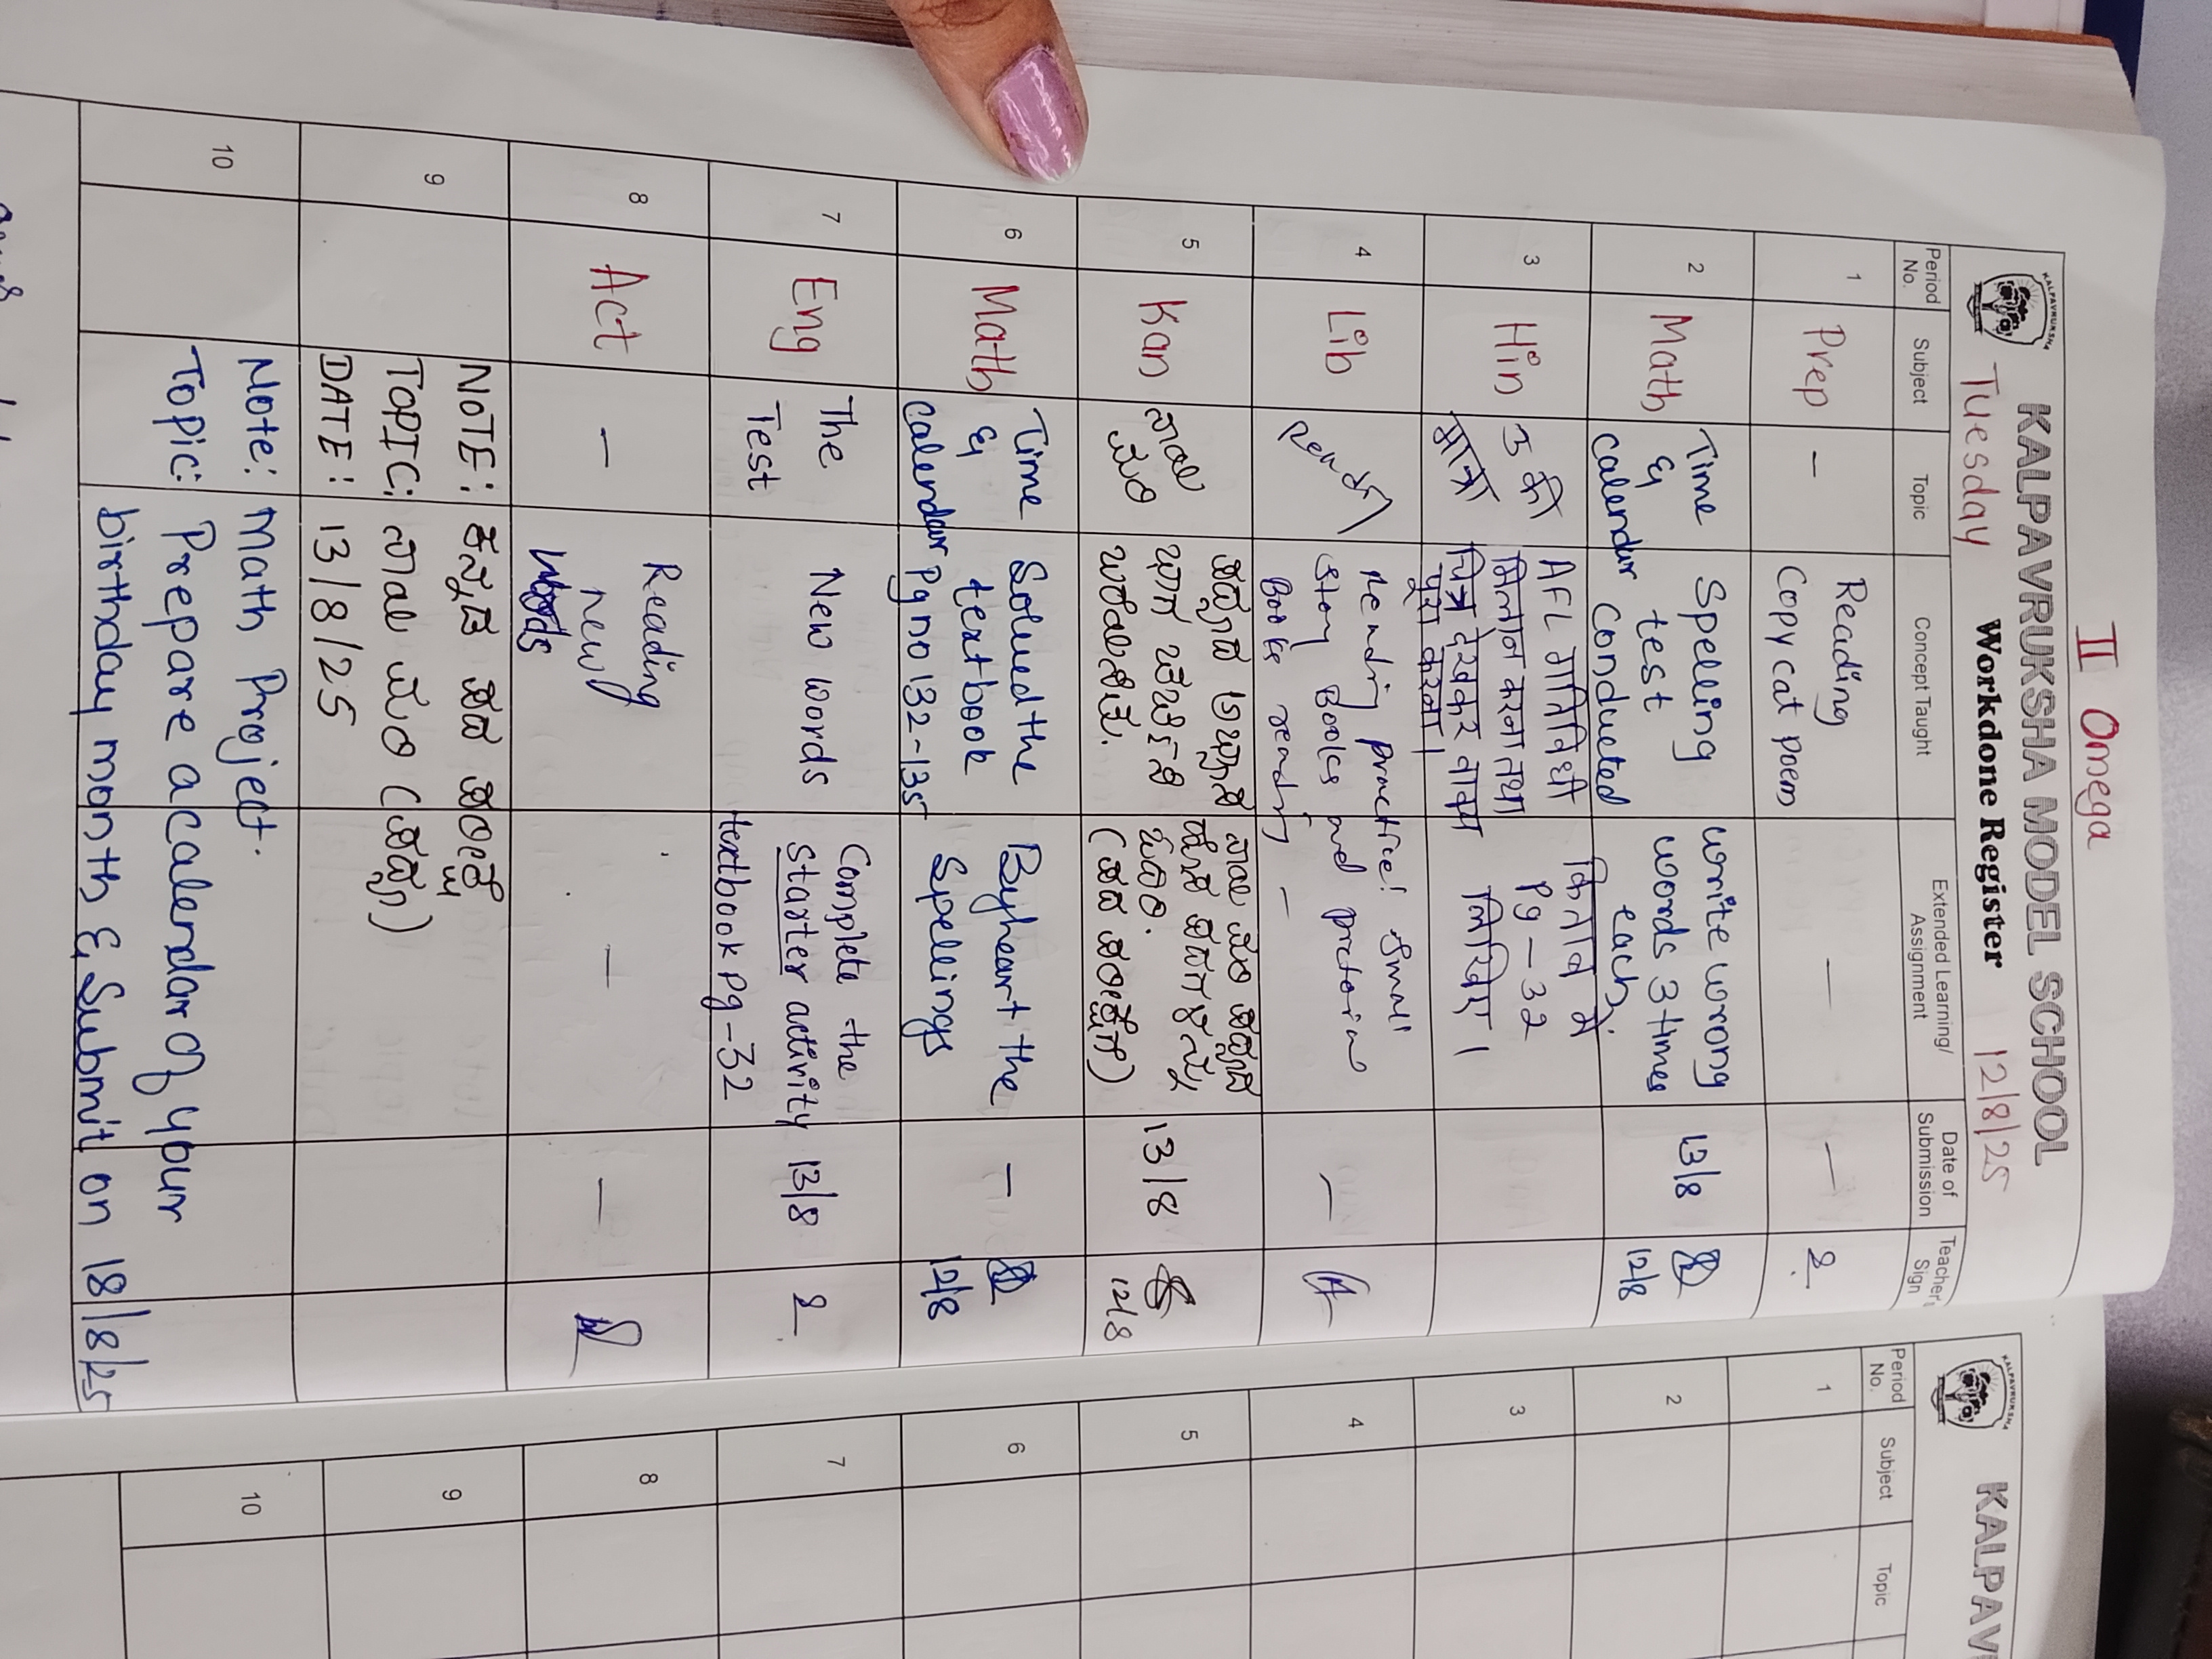 II Omega
KALPAVRUKSHA MODEL SCHOOL
Tuesday Workdone Register 12/8/25
Period No. Subject Topic Concept Taught Extended Learning/ Assignment Date of Submission Teacher's Sign
1 Prep – Reading
Copy cat poem – –
2 Math Time
&
Calendar Spelling
test
Conducted write wrong
words 3 times
each. 13/8
12/8
3 Hin उ की
मात्रा AFL गतिविधी
मिलान करना तथा
चित्र देखकर वाक्य
पूरा करना। किताब में
Pg – 32
लिखिए।
4 Lib Reading practice! Small
story Books and
Books – –
5 Kan ಕಾಲ
ಮಾಪನ
13/8
12/8
6 Math Time
&
Calendar Solved the
textbook
Pg no 132-135 Byheart the
Spellings –
12/8
7 Eng The
Test New words Complete the
starter activity
textbook Pg-32 13/8
8 Act – Reading
new
words – –
9 NOTE: ಕನ್ನಡ ಪದ ಪರೀಕ್ಷೆ
TOPIC:
DATE: 13/8/25
10 Note: Math Project.
Topic: Prepare a calendar of your
birthday month & Submit on 18/8/25
KALPAV
Period No. Subject Topic
1
2
3
4
5
6
7
8
9
10